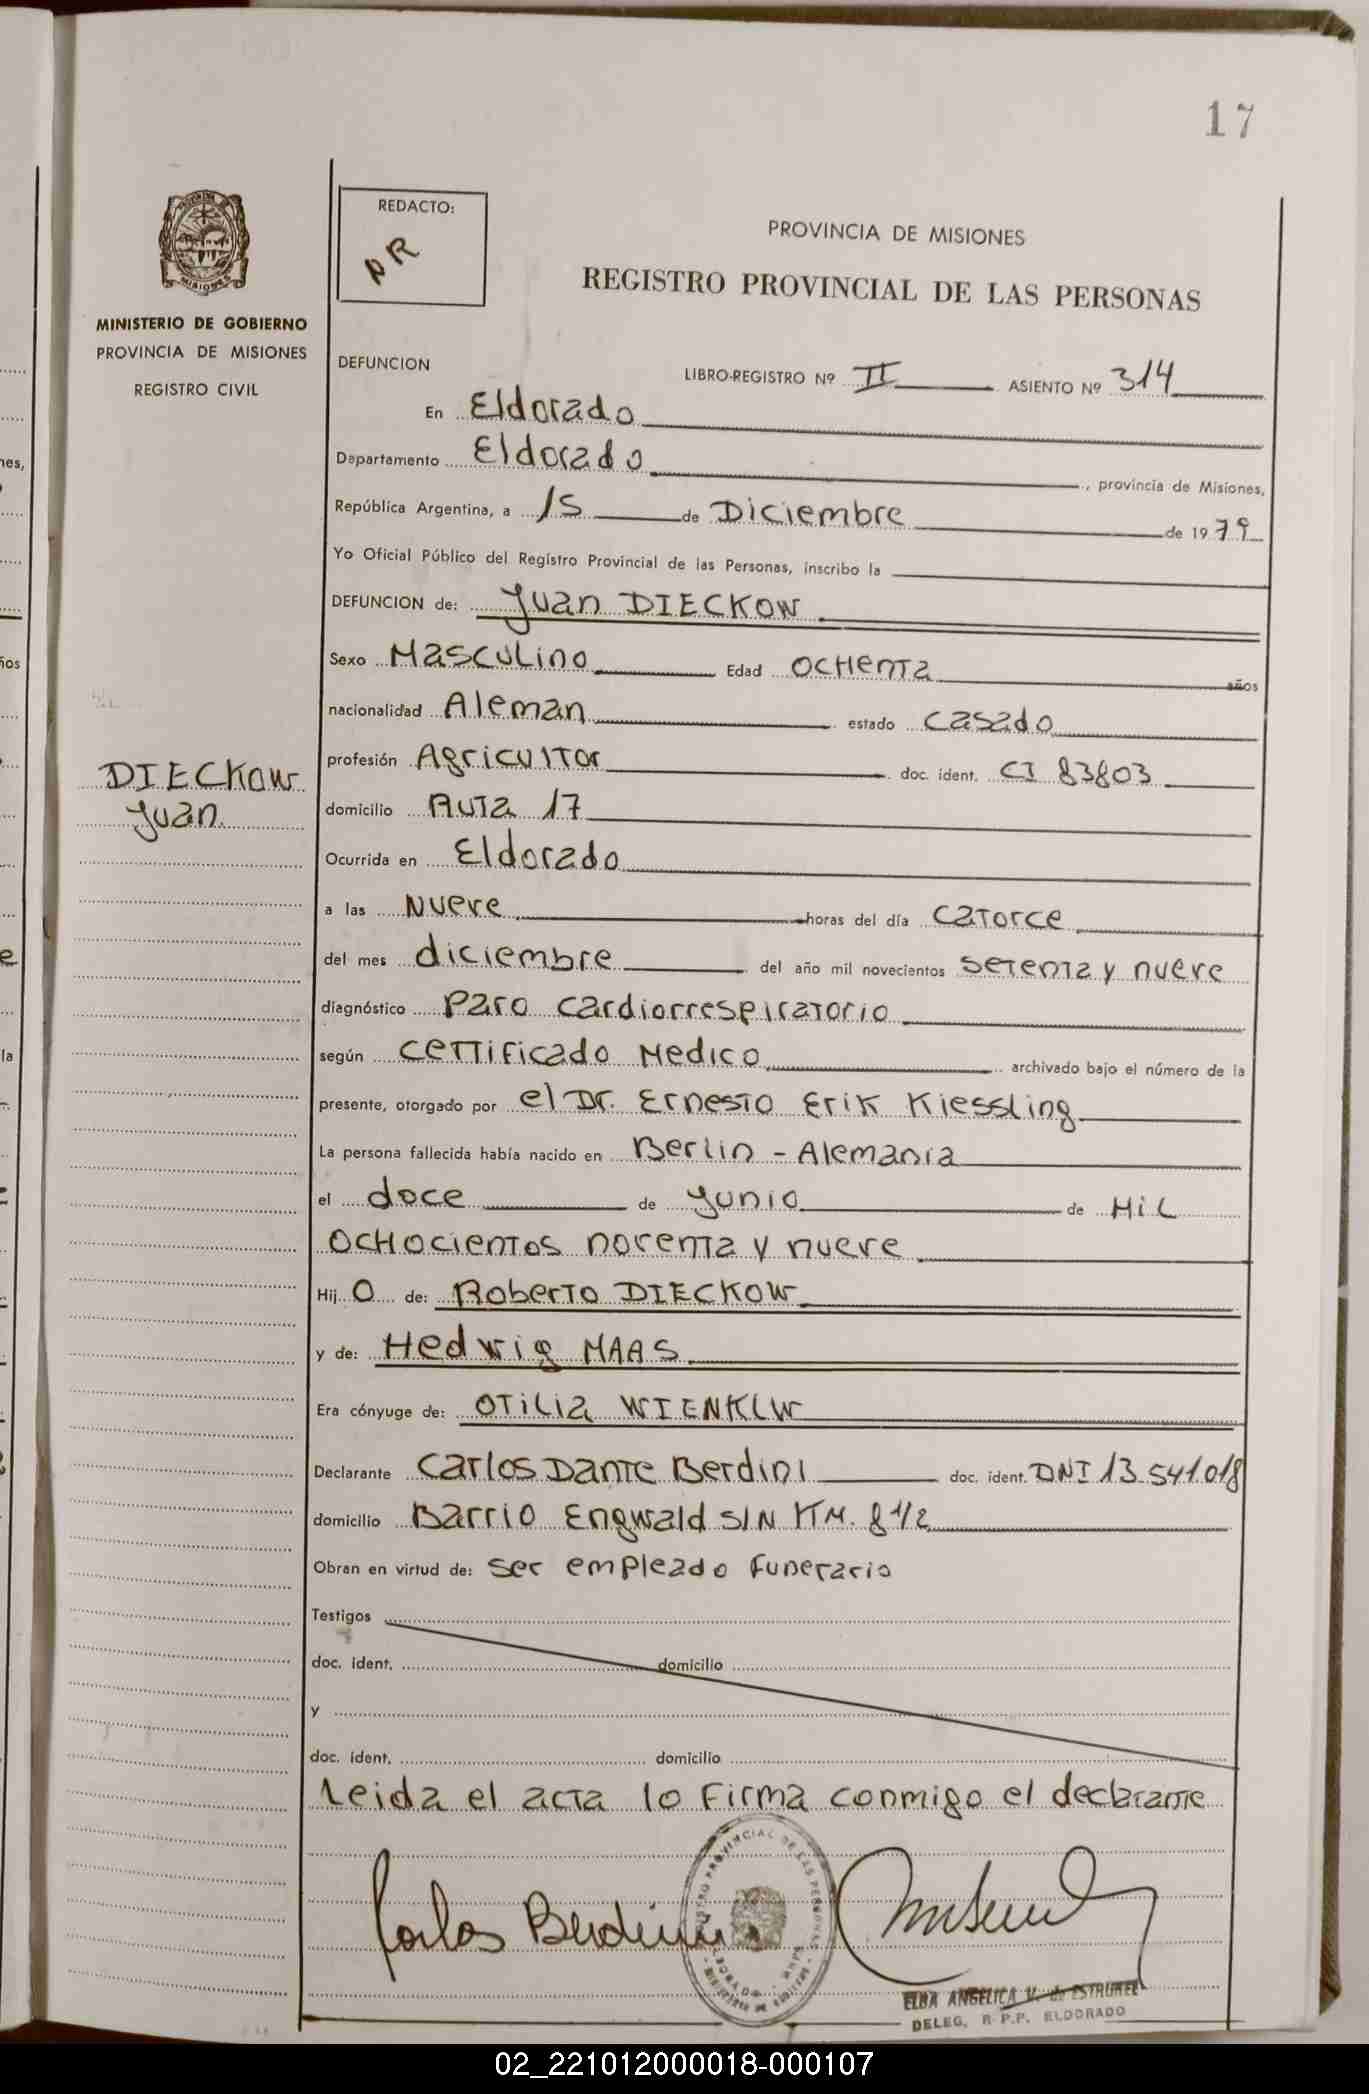 17
REDACTO:
NR
PROVINCIA DE MISIONES
REGISTRO PROVINCIAL DE LAS PERSONAS
MINISTERIO DE GOBIERNO
PROVINCIA DE MISIONES
REGISTRO CIVIL
DEFUNCION
LIBRO-REGISTRO Nº II ASIENTO Nº 314
En Eldorado
Departamento Eldorado, provincia de Misiones,
República Argentina, a 15 de Diciembre de 1979
Yo Oficial Público del Registro Provincial de las Personas, inscribo la
DEFUNCION de: Juan DIECKOW
Sexo Masculino Edad OCHenta años
nacionalidad Aleman estado casado
DIECKOW
Juan
profesión Agricultor doc. ident. CI 83803
domicilio Ruta 17
Ocurrida en Eldorado
a las Nueve horas del día Catorce
del mes diciembre del año mil novecientos setenta y nueve
diagnóstico Paro cardiorrespiratorio
según certificado Medico archivado bajo el número de la
presente, otorgado por el Dr. Ernesto Erik Kiessling
La persona fallecida había nacido en Berlin - Alemania
el doce de Junio de Mil
OCHocientos noventa y nueve
Hij O de: Roberto DIECKOW
y de: Hedwig MAAS
Era cónyuge de: OTILIa WIENKLW
Declarante Carlos Dante Berdini doc. ident. DNI 13.541.018
domicilio Barrio Engwald S/N KM. 8 1/2
Obran en virtud de: ser empleado funerario
Testigos
doc. ident. domicilio
y
doc. ident. domicilio
Leida el acta lo firma conmigo el declarante
Carlos Berdini
ELBA ANGELICA V. de ESTRUKEL
DELEG. R.P.P. ELDORADO
02_221012000018-000107